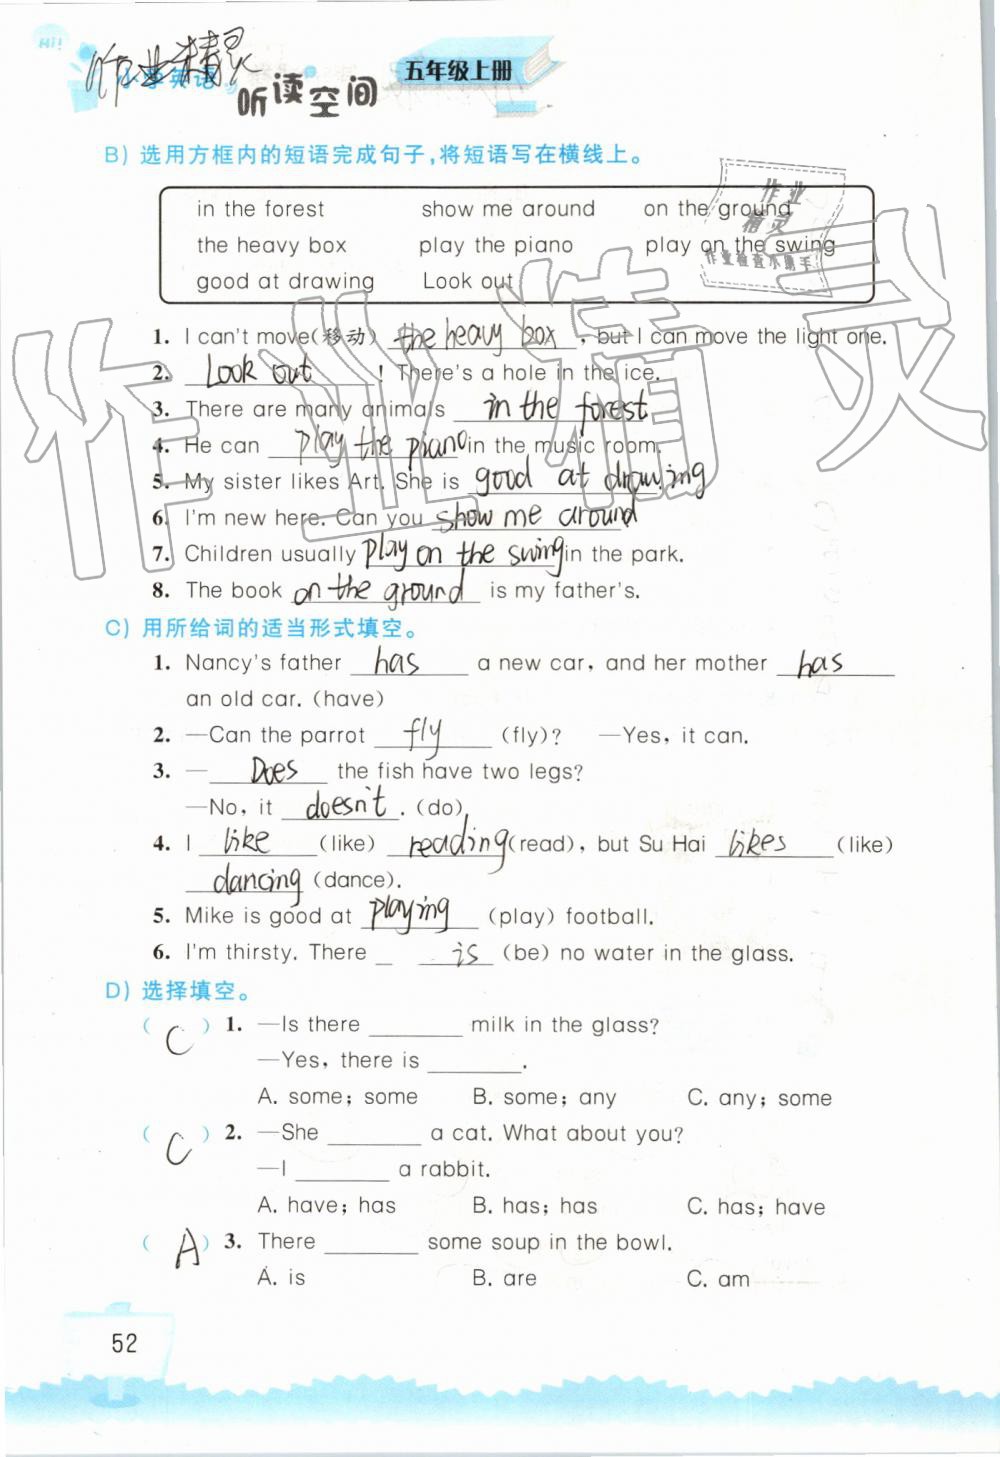 Hi!
作业精灵
小学英语
听读空间
五年级上册
B) 选用方框内的短语完成句子,将短语写在横线上。
in the forest show me around on the ground
the heavy box play the piano play on the swing
good at drawing Look out
作业
精灵
作业检查小助手
1. I can't move(移动) the heavy box, but I can move the light one.
2. Look out! There's a hole in the ice.
3. There are many animals in the forest
4. He can play the piano in the music room.
5. My sister likes Art. She is good at drawing
6. I'm new here. Can you show me around
7. Children usually play on the swing in the park.
8. The book on the ground is my father's.
C) 用所给词的适当形式填空。
1. Nancy's father has a new car, and her mother has
an old car. (have)
2. —Can the parrot fly (fly)? —Yes, it can.
3. — Does the fish have two legs?
—No, it doesn't. (do)
4. I like (like) reading (read), but Su Hai likes (like)
dancing (dance).
5. Mike is good at playing (play) football.
6. I'm thirsty. There _ is (be) no water in the glass.
D) 选择填空。
( C ) 1. —Is there ________ milk in the glass?
—Yes, there is ________.
A. some; some B. some; any C. any; some
( C ) 2. —She ________ a cat. What about you?
—I ________ a rabbit.
A. have; has B. has; has C. has; have
( A ) 3. There ________ some soup in the bowl.
A. is B. are C. am
52
作业精灵